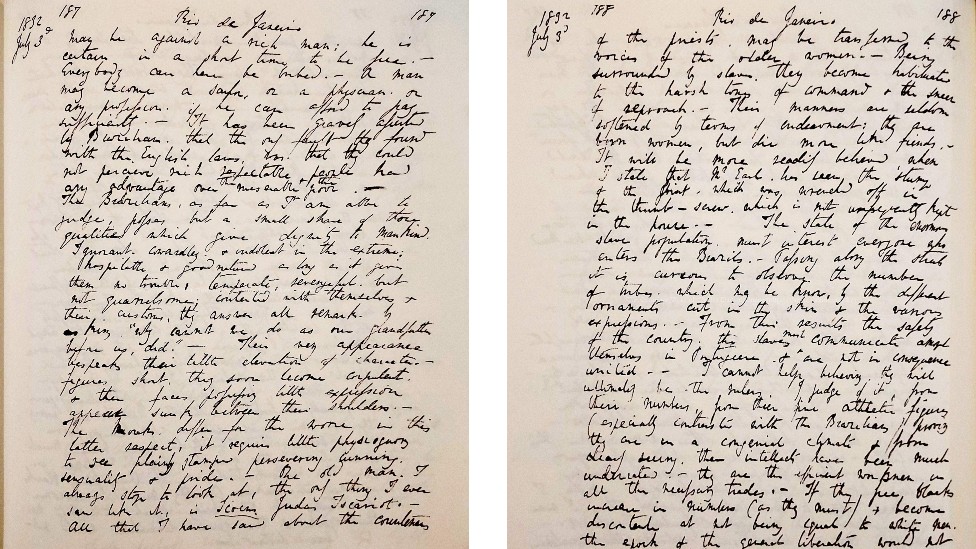 187
187
1832
July 3d
Rio de Janeiro
may be against a rich man; he is
certain in a short time to be free. —
Everybody can here be bribed. — A man
may become a sailor, or a physician, or
any profession. if he can afford to pay
sufficiently. — It has been gravely asserted
by Brazilians that the only fault they found
with the English laws, was that they could
not perceive rich respectable people had
any advantage over the miserable & the poor. —
The Brazilians, as far as I am able to
judge, possess but a small share of those
qualities which give dignity to mankind.
Ignorant, cowardly, & indolent in the extreme;
hospitable & good natured as long as it gives
them no trouble; temperate, revengeful, but
not quarrelsome; contented with themselves &
their customs, they answer all remarks by
asking "why cannot we do as our grandfathers
before us did". — Their very appearance
bespeaks their little elevation of character. —
figures short, they soon become corpulent.
& their faces possessing little expression
appear sunk between their shoulders. —
The Monks differ for the worse in this
latter respect; it requires little physiognomy
to see plainly stamped persevering cunning,
sensuality & pride. — One old man, I
always stop to look at, the only thing I ever
saw like it, is Scoens Judas Iscariot. —
All that I have said about the countenances
1832
188
188
July 3d
Rio de Janeiro
of the priests, may be transferred to the
voices of the older women. — Being
surrounded by slaves, they become habituated
to the harsh tones of command & the sneer
of reproach. — Their manners are seldom
softened by terms of endearment; they are
born women, but die more like fiends. —
It will be more readily believed when
I state that Mr Earl has seen the stump
of the joint, which was wrenched off in
the thumb-screw, which is not unfrequently kept
in the house. — The state of the enormous
slave population must interest everyone who
enters the Brazils. — Passing along the streets
it is curious to observe the numbers
of tribes which may be known by the different
ornaments cut in the skin & the various
expressions. — From this results the safety
of the country. the slaves must communicate amongst
themselves in Portugueese & are not in consequence
united. — I cannot help believing they will
ultimately be the rulers. I judge of it from
their numbers, from their fine athletic figures
(especially contrasted with the Brazilians) proving
they are in a congenial climate, & from
clearly seeing their intellects have been much
underrated; — they are the efficient workmen in
all the necessary trades. — If the free blacks
increase in numbers (as they must) & become
discontented at not being equal to white men,
the epoch of the general liberation would not